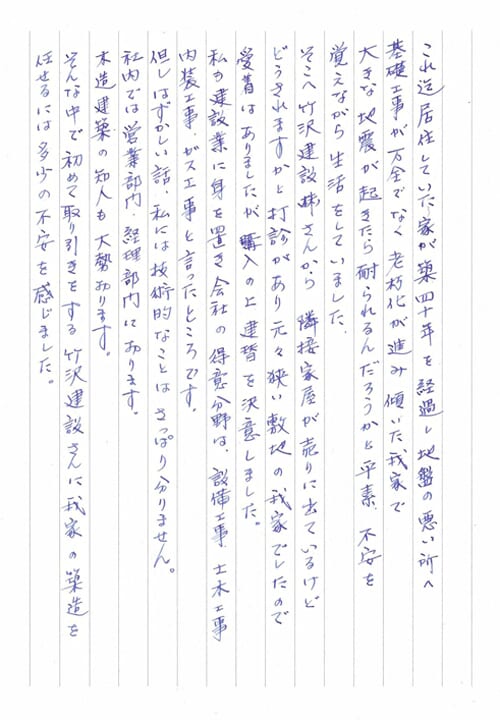 これ迄居住していた家が築四十年を経過し地盤の悪い所へ
基礎工事が万全でなく老朽化が進み傾いた我家で
大きな地震が起きたら耐られるんだろうかと平素、不安を
覚えながら生活をしていました。
そこへ竹沢建設㈱さんから隣接家屋が売りに出ているけど
どうされますかと打診があり元々狭い敷地の我家でしたので
愛着はありましたが購入の上建替を決意しました。
私も建設業に身を置き会社の得意分野は、設備工事、土木工事
内装工事、ガス工事と言ったところです。
但しはずかしい話、私には技術的なことはさっぱり分りません。
社内では営業部門、経理部門にあります。
木造建築の知人も大勢おります。
そんな中で初めて取り引きをする竹沢建設さんに我家の築造を
任せるには多少の不安を感じました。